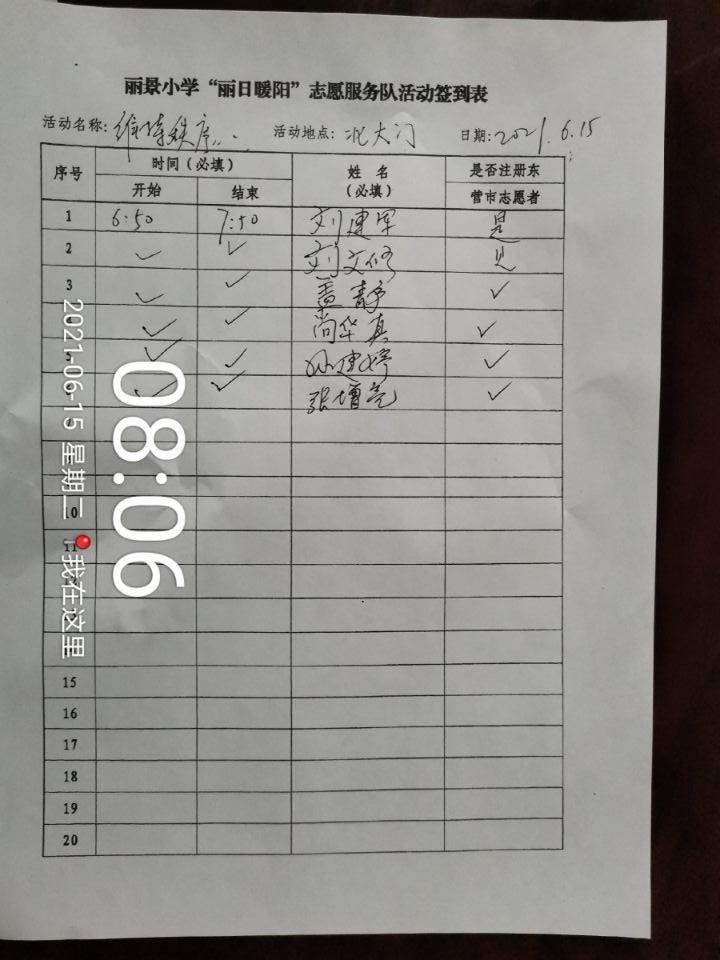 丽景小学“丽日暖阳”志愿服务队活动签到表
活动名称：维持秩序 活动地点：北大门 日期：2021.6.15
序号 时间（必填） 姓名（必填） 是否注册东营市志愿者
开始 结束
1 6:50 7:50 刘建军 是
2 ✓ ✓ 刘文修 是
3 ✓ ✓ 孟静 ✓
✓ ✓ 尚华真 ✓
5 ✓ ✓ 孙建婷 ✓
✓ ✓ 张增亮 ✓
10
11
15
16
17
18
19
20
08:06
2021-06-15 星期二
我在这里